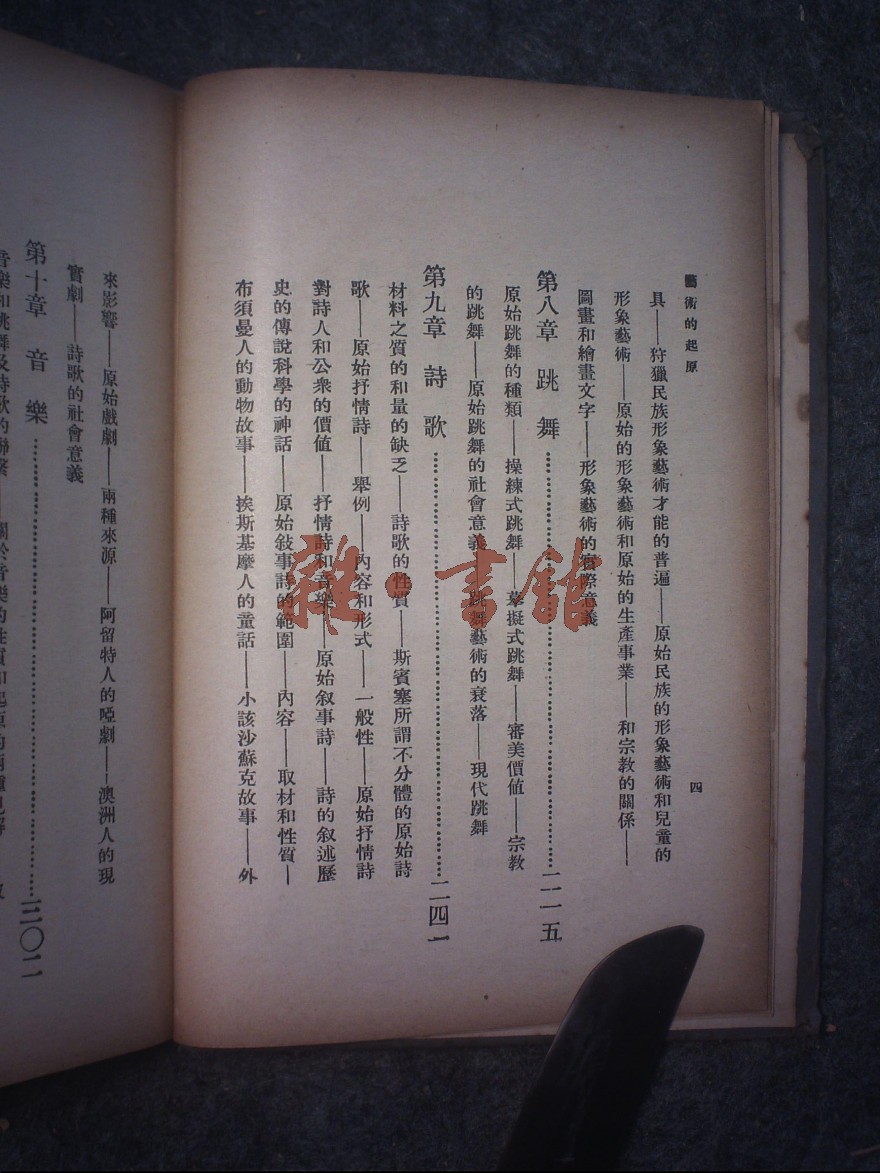 藝術的起原
四
具——狩獵民族形象藝術才能的普遍——原始民族的形象藝術和兒童的
形象藝術——原始的形象藝術和原始的生產事業——和宗教的關係——
圖畫和繪畫文字——形象藝術的實際意義
第八章 跳舞……二一五
原始跳舞的種類——操練式跳舞——摹擬式跳舞——審美價値——宗教
的跳舞——原始跳舞的社會意義——跳舞藝術的衰落——現代跳舞
第九章 詩歌……二四一
材料之質的和量的缺乏——詩歌的性質——斯賓塞所謂不分體的原始詩
歌——原始抒情詩——舉例——內容和形式——一般性——原始抒情詩
對詩人和公衆的價値——抒情詩和音樂——原始叙事詩——詩的叙述歷
史的傳說科學的神話——原始敍事詩的範圍——內容——取材和性質—
布須曼人的動物故事——挨斯基摩人的童話——小該沙蘇克故事——外
來影響——原始戲劇——兩種來源——阿留特人的啞劇——澳洲人的現
實劇——詩歌的社會意義
第十章 音樂……三〇二
音樂和跳舞及詩歌的聯繫——關於音樂的性質和起原的兩種見解
雜·書館